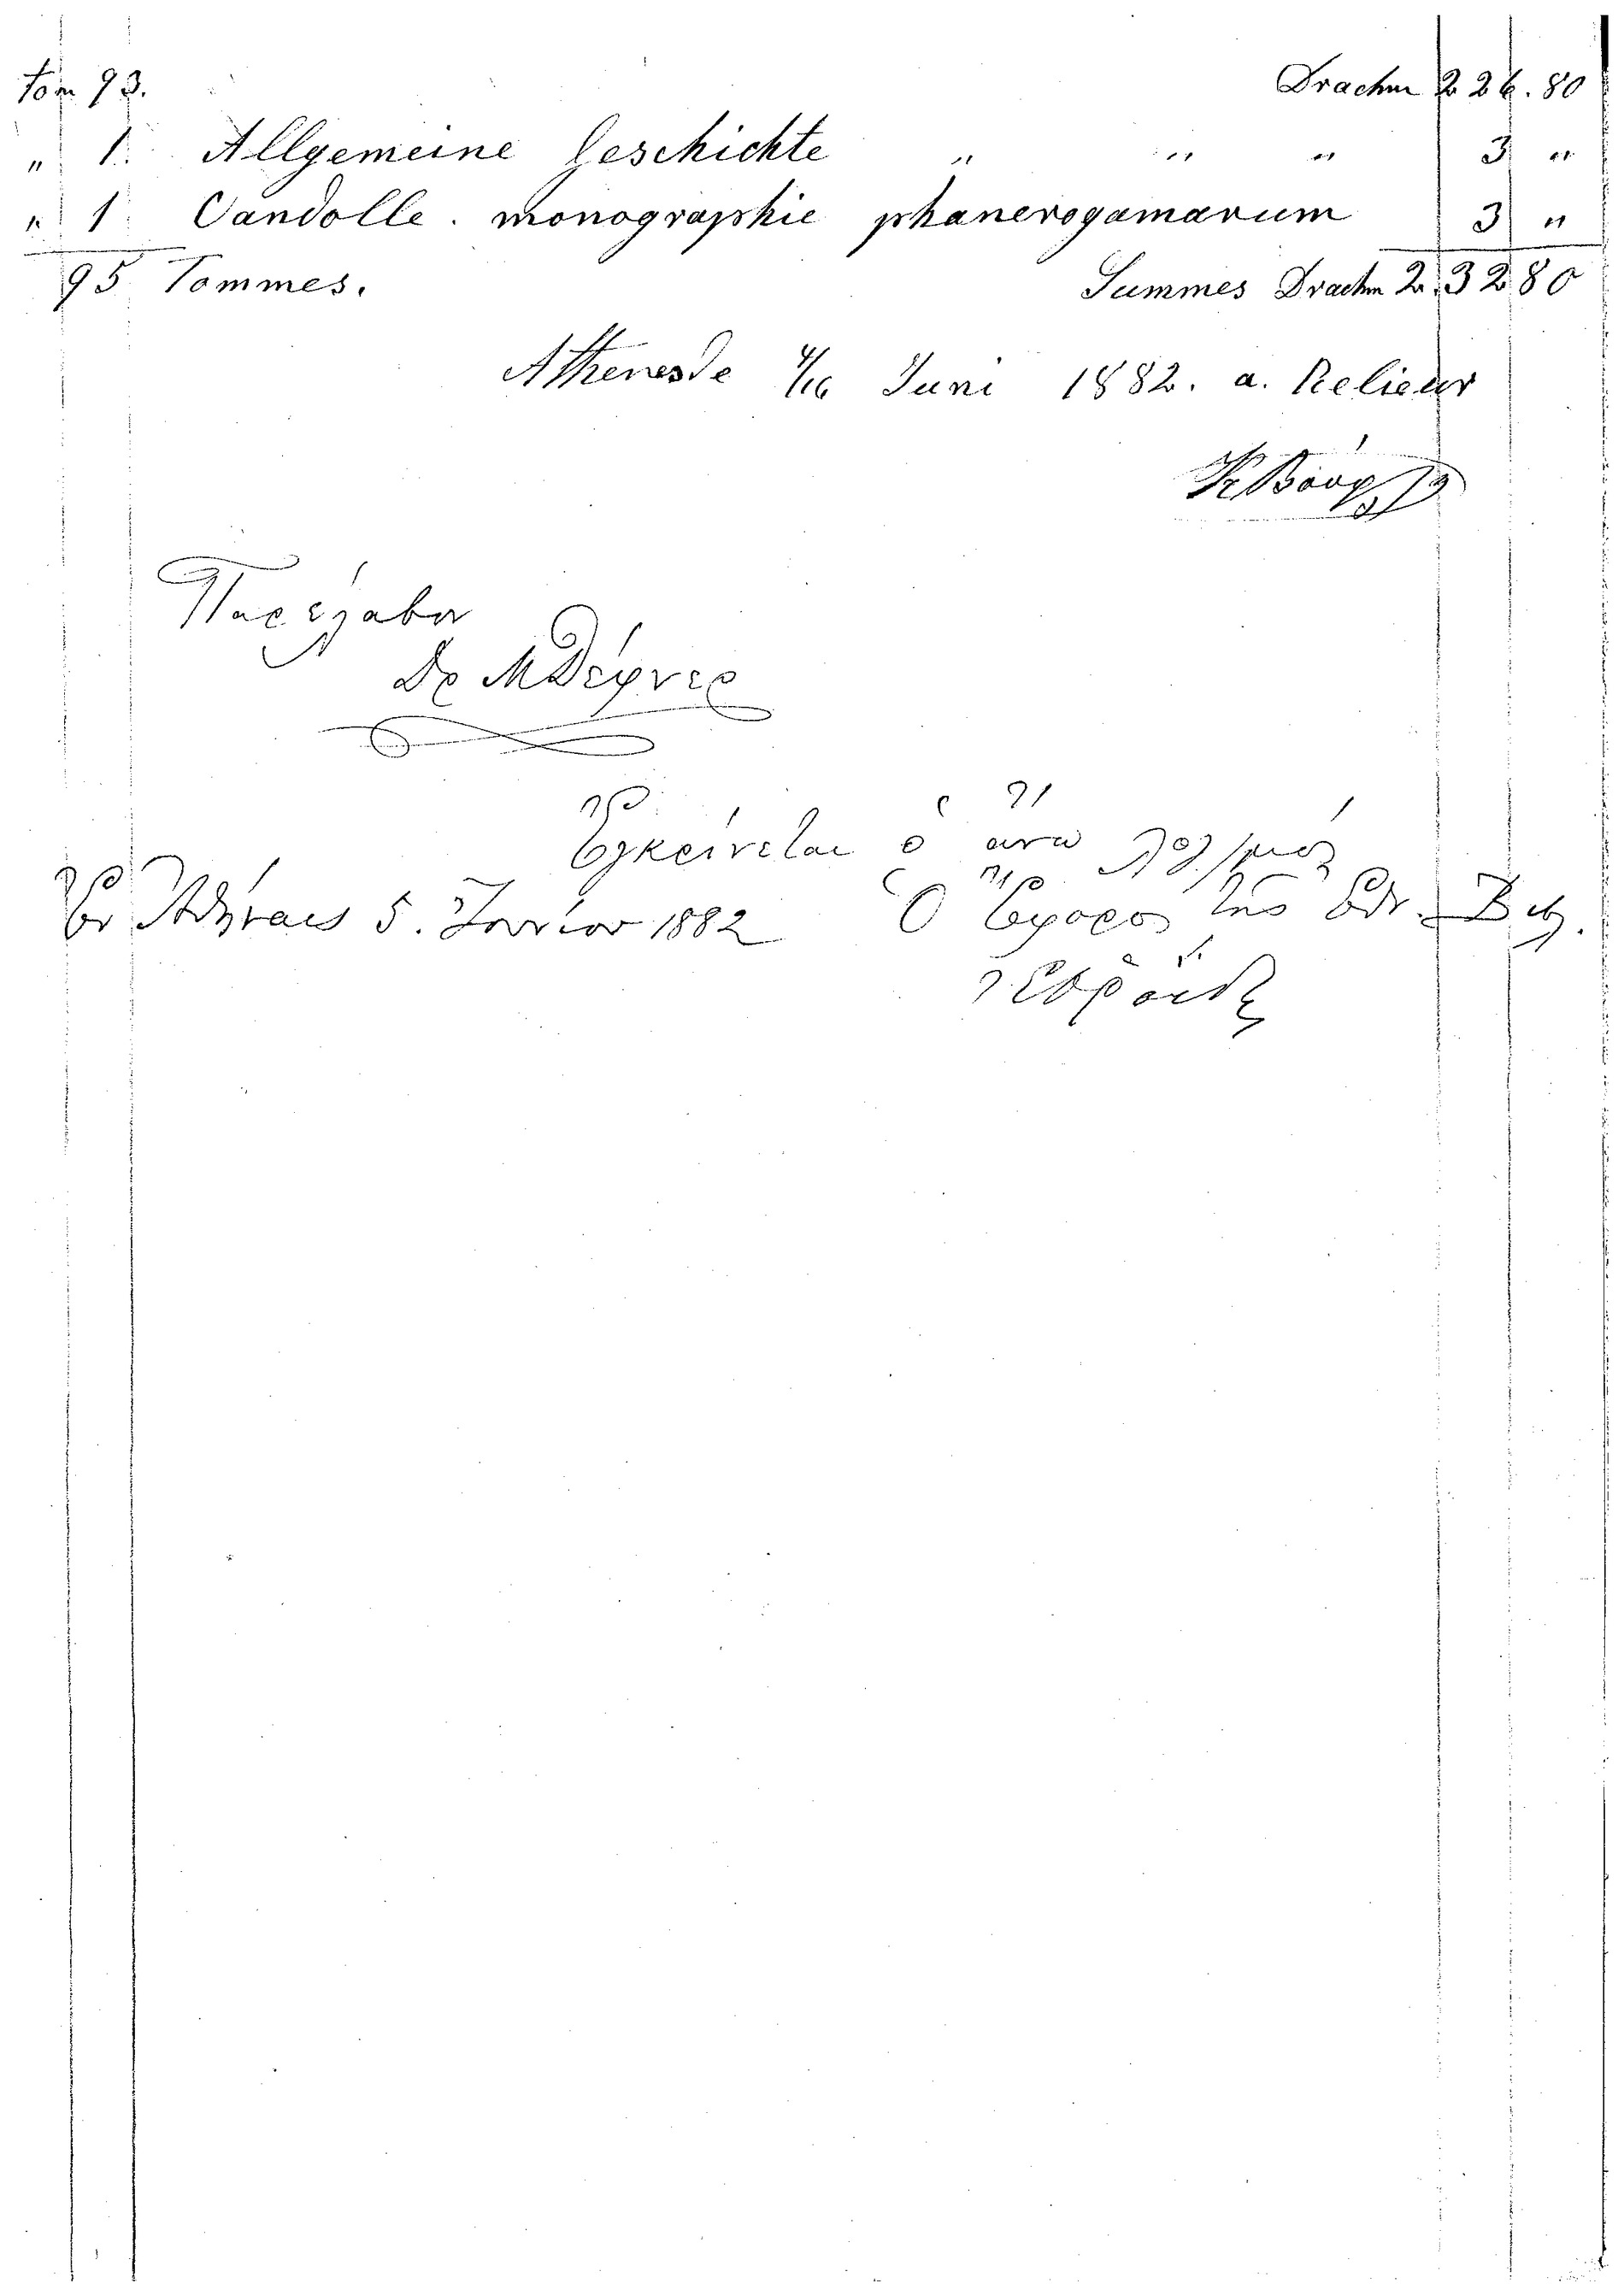 Tom 93. Drachm 226.80
„ 1. Allgemeine Geschichte „ „ „ 3 „
„ 1 Candolle. monographie phanerogamarum 3 „
95 Tommes. Summes Drachm 232 80
Athenes de 4/16 Juni 1882. a. Relieur
Παρέλαβον
Ἐγκρίνεται ὁ ἄνω λογ/σμός
Ἐν Ἀθήναις 5. Ἰουνίου 1882 Ὁ Ἔφορος τῆς Ἐθν. Βιβ.